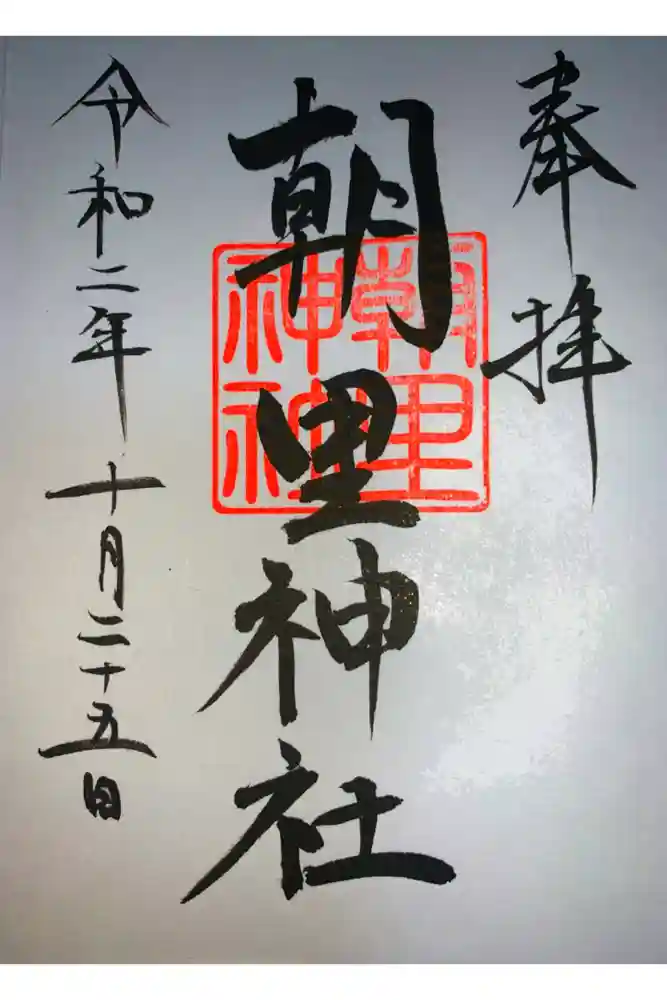 奉拝
朝里神社
朝里神社
令和二年十月二十五日